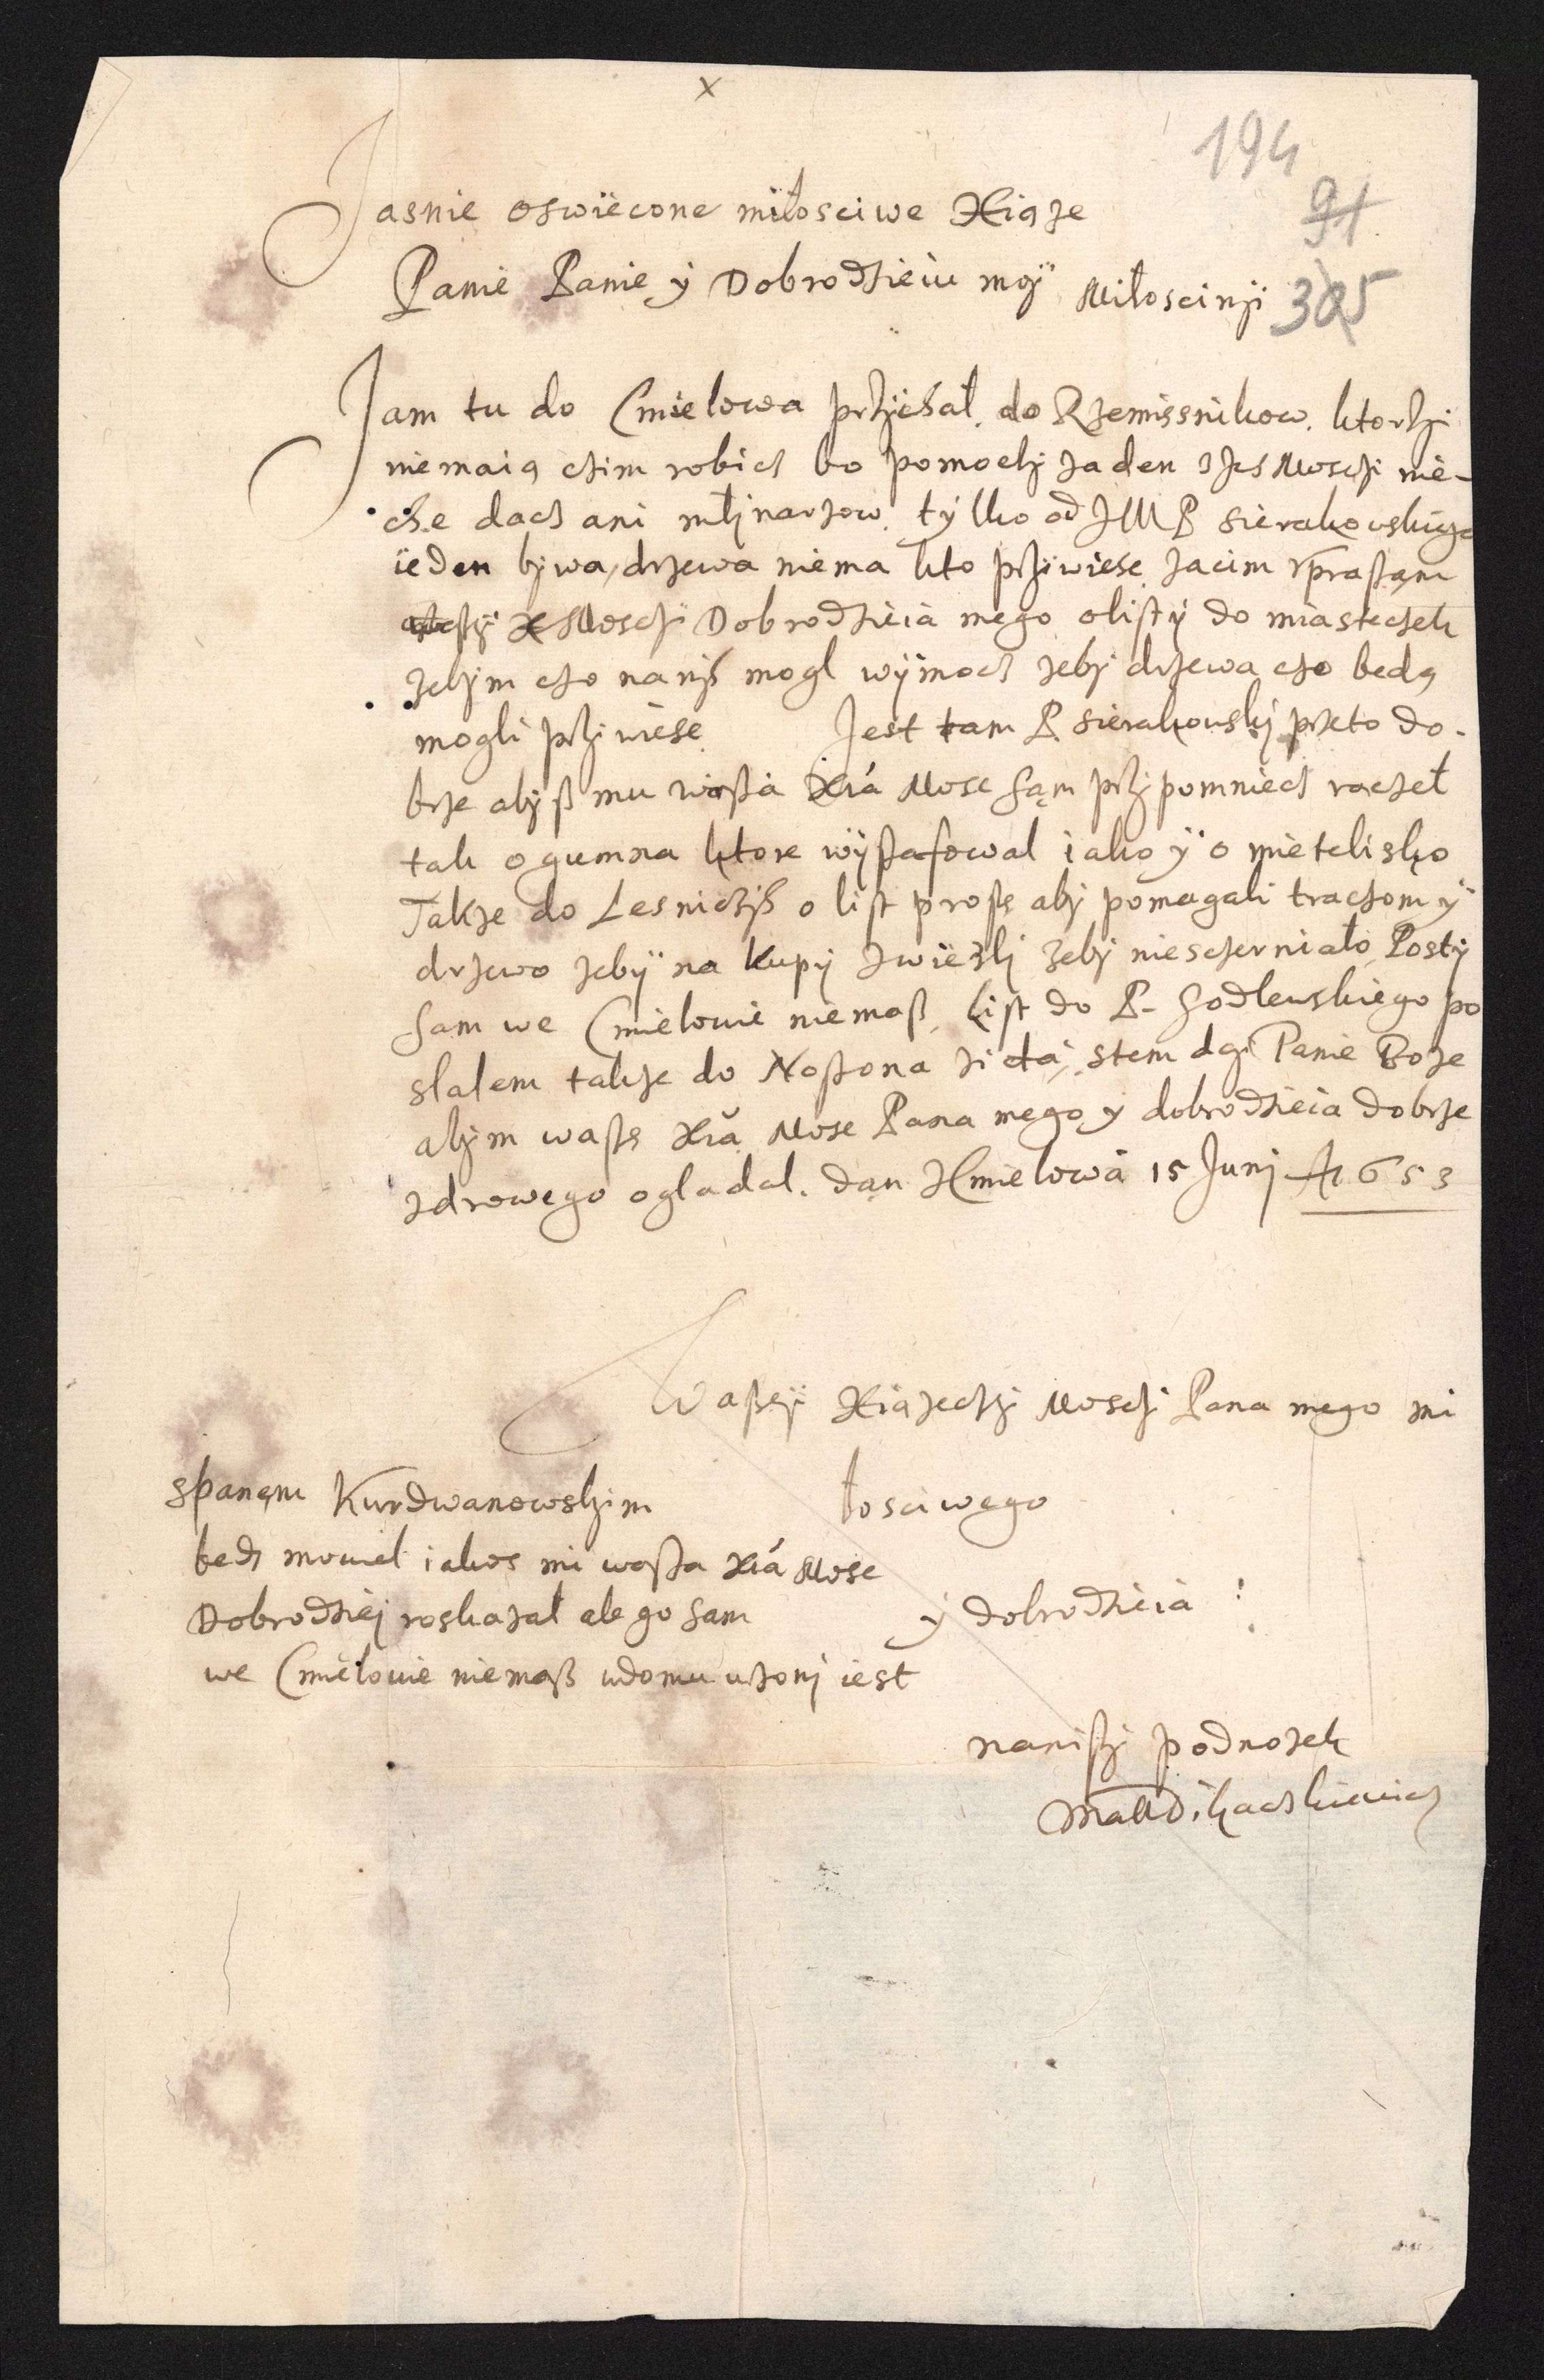 x
194
91
305
Jasnie oswiecone miłosciwe Xiąze
Panie Panie y Dobrodzieiu moÿ Miłosciwÿ
Jam tu do Cmielowa przÿchał do Rzemissnikow ktorzi
niemaią czim robicz bo pomoczÿ zaden
che dacz ani młÿnarzow tylko od JMP Sierakowskiego
ieden bÿwa, drzewa niema kto prziwiesc zacim
Mosczi Dobrodzieia mego o listÿ do miasteczek
zebÿm czo na nÿch mogl wÿmocz zebÿ drzewa czo bedą
mogli prziwiesc Jest tam P Sierakowskÿ przeto do-
brze abÿß mu waßa Xiá Mosc sąm przÿpomniecz raczeł
tak o gumna ktore wÿstafowal iako ÿ o mietelisko
Takze do Lesniczÿch o list proszę abÿ pomagali traczom ÿ
drzewo zebÿ na kupy zwiezli zebÿ niesczerniało
sam we Cmielowie niemaß List do P. Godlewskiego po
slalem takze do stem daj Panie Boze
abÿm waßę Xiă Mosc Pana mego y dobrodzieia dobrze
zdrowego ogladal. dan Zcmielowa 15 Junj A 653
Waßeÿ Xiązeczÿ Mosczi Pana mego mi
łosciwego
y dobrodzieia
spanęm Kurdwanowskim
bedz mowiel iakos mi waßa Xiá Mosc
Dobrodziej roskazał ale go sam
we Cmielowie niemaß wdomu uzonj iest
naniszÿ podnozek